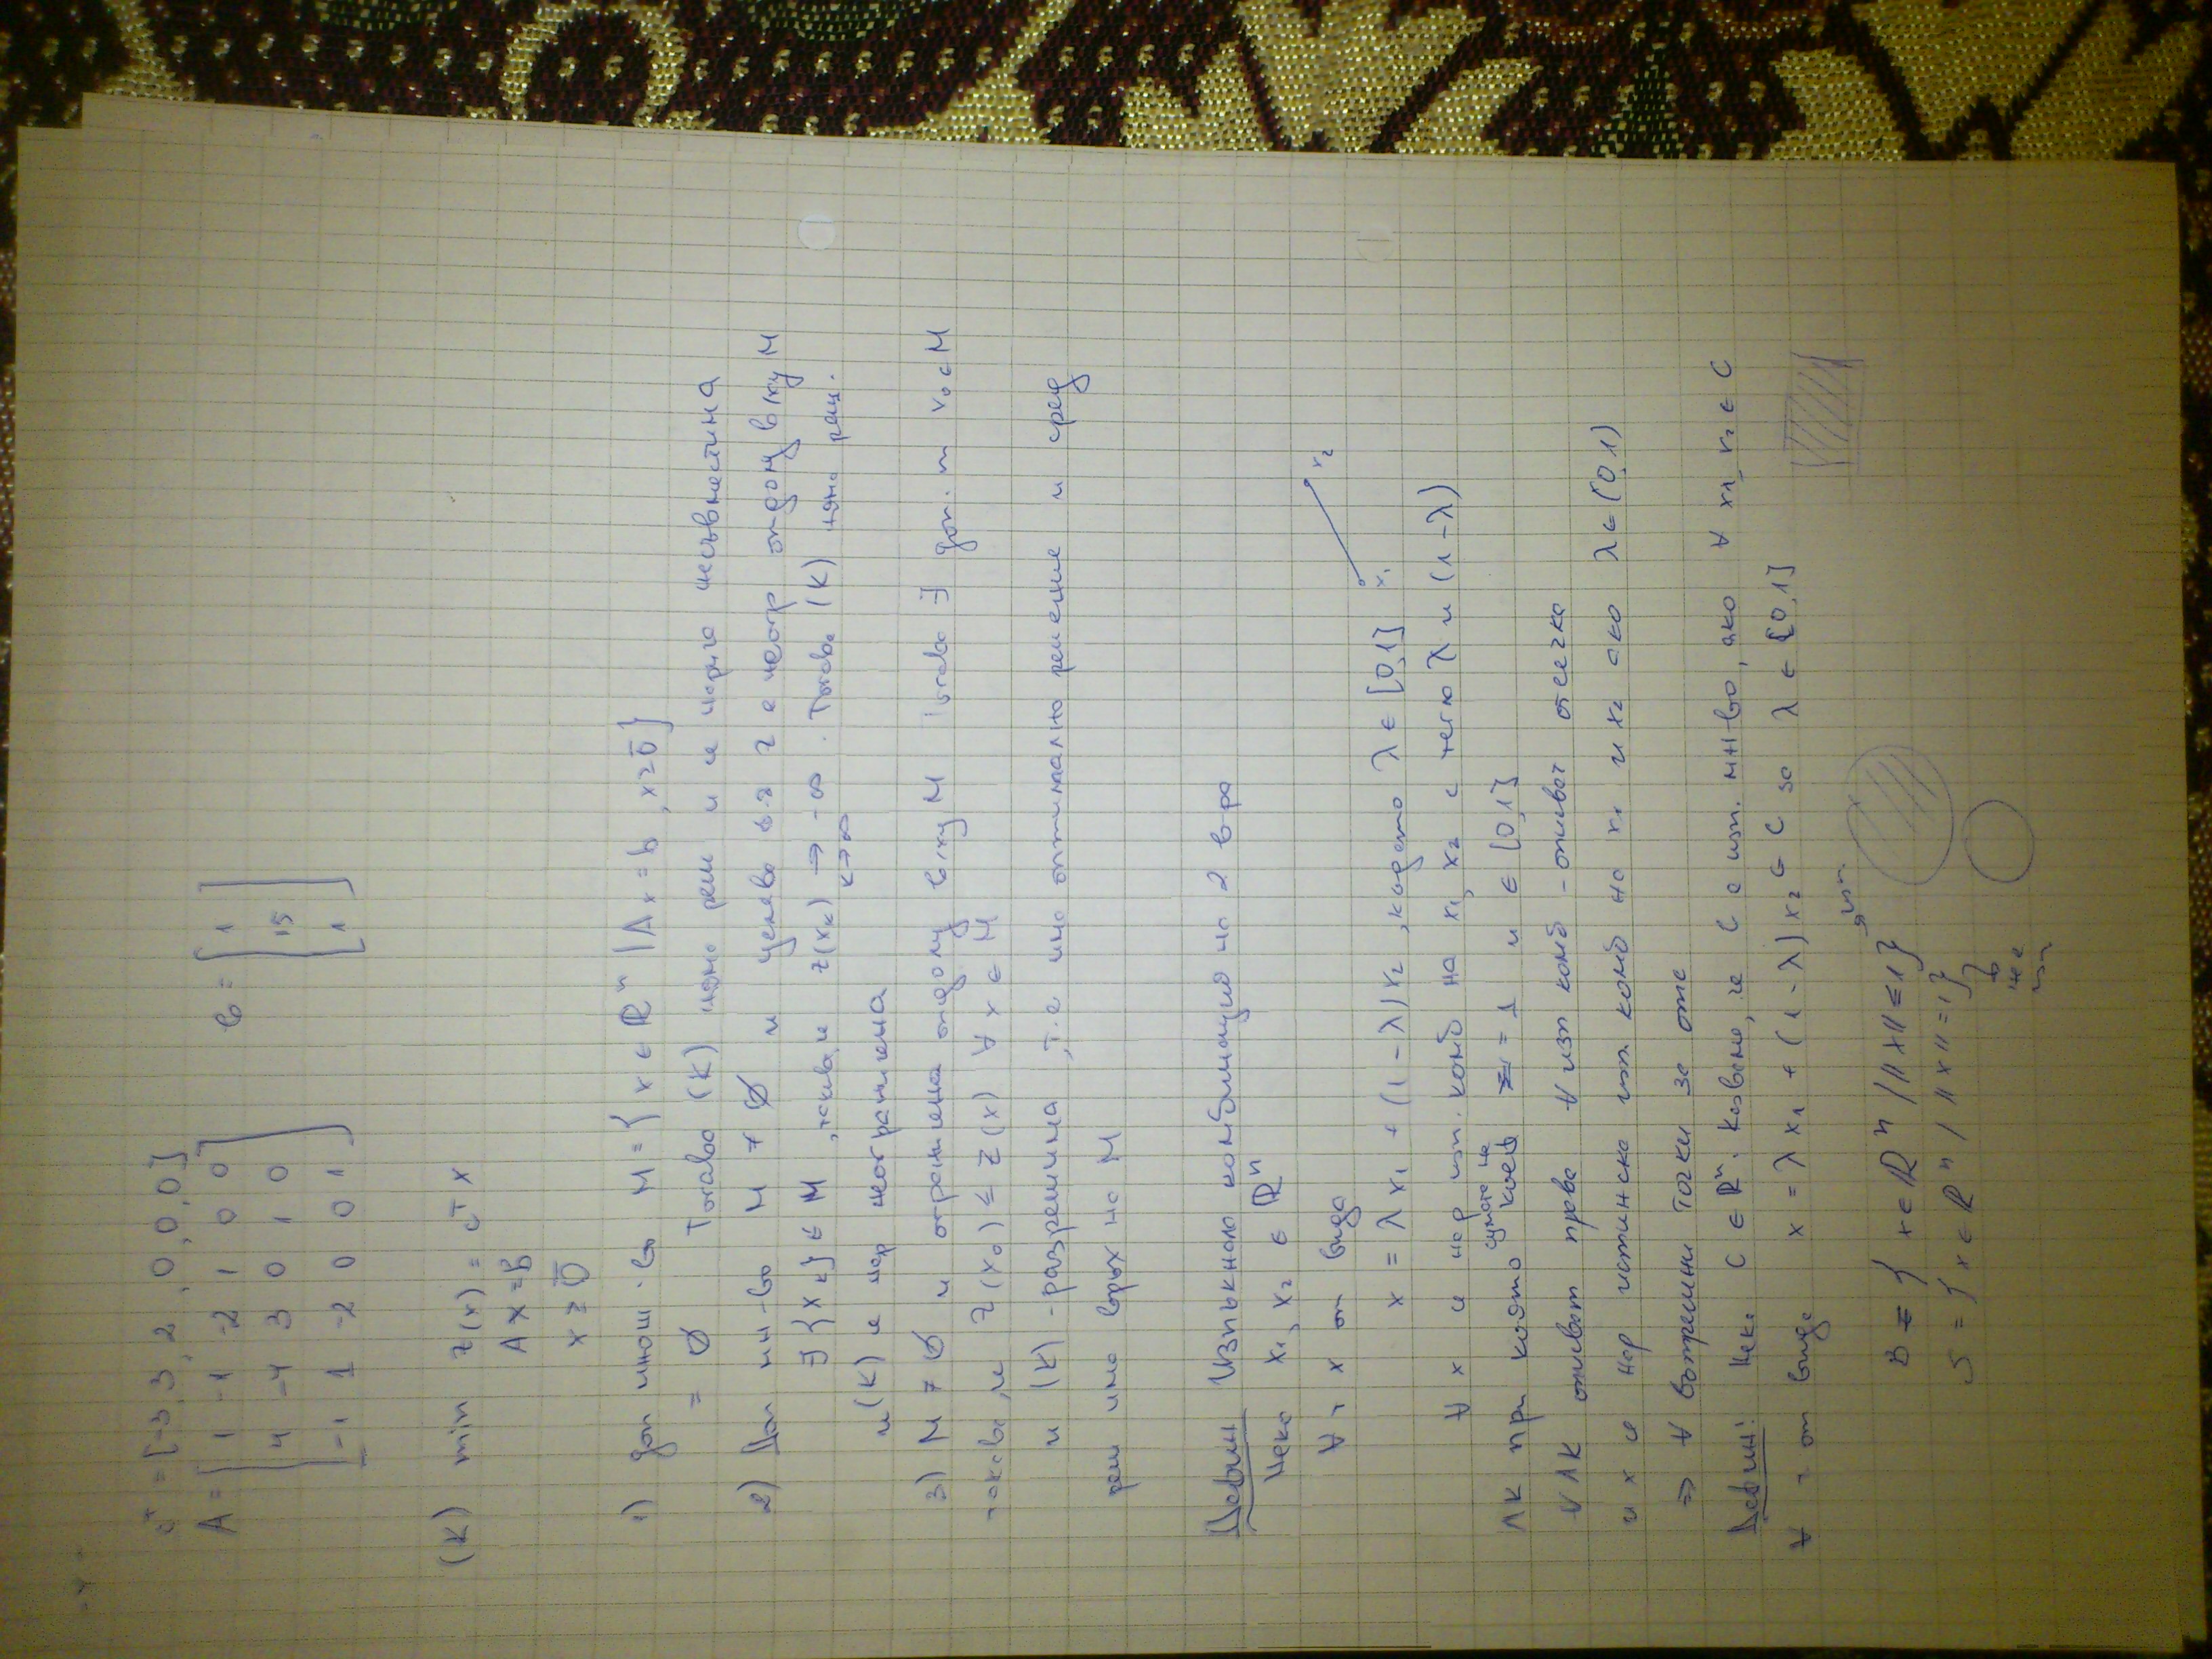 c^T = [-3, 3, 2, 0, 0, 0]
A = [ 1 -1 -2 1 0 0
4 -4 3 0 1 0
-1 1 -2 0 0 1 ]
b = [ 1
15
1 ]
(K) min z(x) = c^T x
Ax = b
x ≥ 0̄
1) доп множ. M = { x ∈ ℝ^n | Ax = b, x ≥ 0̄ }
= ∅ Тогава (K) няма реш и се нарича несъвместима
2) Доп мн-во M ≠ ∅ и целева z е неогр отдолу в/ху M
∃ {x_k} ∈ M, такава, че z(x_k) → -∞ k→∞. Тогава (K) няма реш.
и (K) се нар неограничена
3) M ≠ ∅ и ограничена отдолу в/ху M Тогава ∃ доп. т x_0 ∈ M
такава, че z(x_0) ≤ z(x) ∀ x ∈ M
и (K) - разрешима, т.е има оптимално решение и сред
реш има връх на M
Дефин Изпъкнала комбинация на 2 в-ра
Нека x_1, x_2 ∈ ℝ^n
∀ т x от вида
x = λx_1 + (1-λ)x_2, където λ ∈ [0,1]
x_1 x_2
∀ x се нар изп. комб на x_1, x_2 с тегло λ и (1-λ)
ЛК при която сумата на коеф = 1 и ∈ [0,1]
∀ ЛК описват права ∀ изп комб - описват отсечка
и x се нар истинска изп. комб на x_1 и x_2 ако λ ∈ (0,1)
⇒ ∀ вътрешни точки за отс
Дефин: Нека C ∈ ℝ^n. Казваме, че C е изп. мн-во, ако ∀ x_1, x_2 ∈ C
∀ т от вида x = λx_1 + (1-λ)x_2 ∈ C за λ ∈ [0,1]
B = { x ∈ ℝ^n / ||x|| ≤ 1 } изп.
S = { x ∈ ℝ^n / ||x|| = 1 }
не
изп